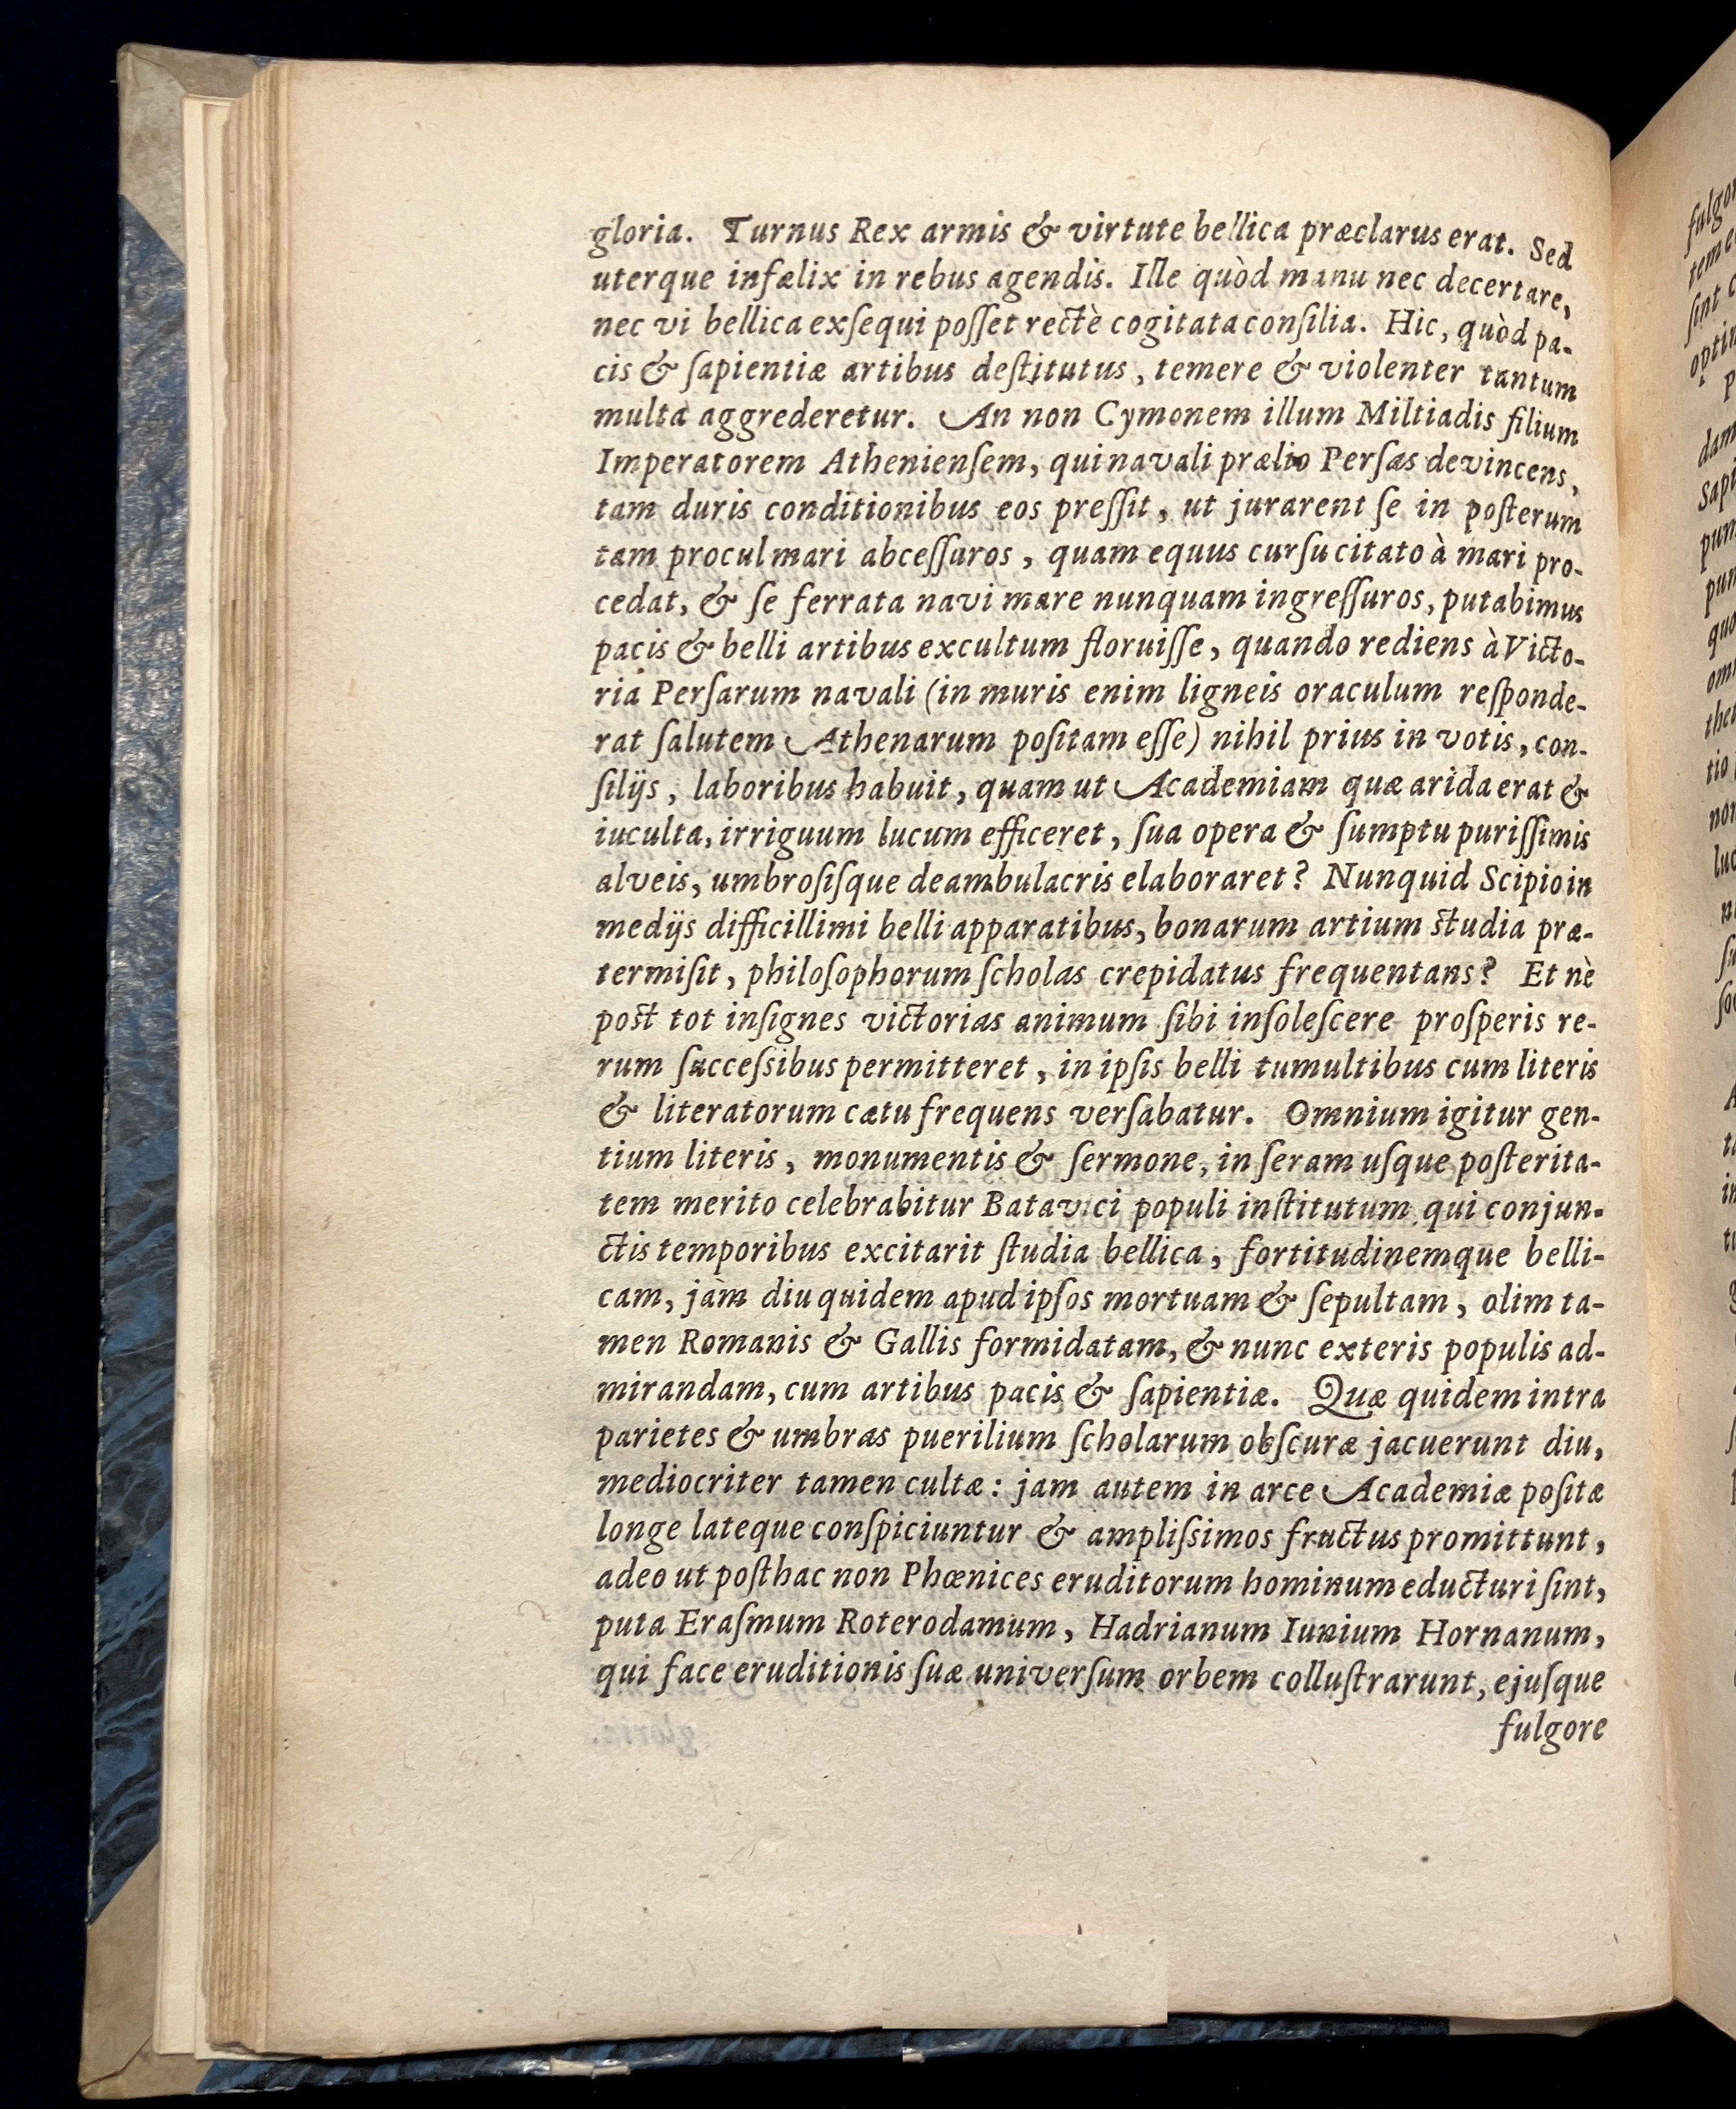 gloria. Turnus Rex armis & virtute bellica præclarus erat. Sed
uterque infælix in rebus agendis. Ille quòd manu nec decertare,
nec vi bellica exſequi poſſet rectè cogitata conſilia. Hic, quòd pa-
cis & ſapientiæ artibus deſtitutus, temere & violenter tantum
multa aggrederetur. An non Cymonem illum Miltiadis filium
Imperatorem Athenienſem, qui navali prælio Perſas devincens,
tam duris conditionibus eos preſſit, ut jurarent ſe in poſterum
tam procul mari abceſſuros, quam equus curſu citato à mari pro-
cedat, & ſe ferrata navi mare nunquam ingreſſuros, putabimus
pacis & belli artibus excultum floruiſſe, quando rediens à Victo-
ria Perſarum navali (in muris enim ligneis oraculum reſponde-
rat ſalutem Athenarum poſitam eſſe) nihil prius in votis, con-
ſilijs, laboribus habuit, quam ut Academiam quæ arida erat &
iuculta, irriguum lucum efficeret, ſua opera & ſumptu puriſſimis
alveis, umbroſiſque deambulacris elaboraret? Nunquid Scipio in
medijs difficillimi belli apparatibus, bonarum artium ſtudia præ-
termiſit, philoſophorum ſcholas crepidatus frequentans? Et nè
poſt tot inſignes victorias animum ſibi inſoleſcere proſperis re-
rum ſucceſsibus permitteret, in ipſis belli tumultibus cum literis
& literatorum cætu frequens verſabatur. Omnium igitur gen-
tium literis, monumentis & ſermone, in ſeram uſque poſterita-
tem merito celebrabitur Batavici populi inſtitutum qui conjun-
ctis temporibus excitarit ſtudia bellica, fortitudinemque belli-
cam, jàm diu quidem apud ipſos mortuam & ſepultam, olim ta-
men Romanis & Gallis formidatam, & nunc exteris populis ad-
mirandam, cum artibus pacis & ſapientiæ. Quæ quidem intra
parietes & umbras puerilium ſcholarum obſcuræ jacuerunt diu,
mediocriter tamen cultæ: jam autem in arce Academiæ poſitæ
longe lateque conſpiciuntur & ampliſsimos fructus promittunt,
adeo ut poſthac non Phœnices eruditorum hominum educturi ſint,
puta Eraſmum Roterodamum, Hadrianum Iunium Hornanum,
qui face eruditionis ſuæ univerſum orbem colluſtrarunt, ejuſque
fulgore